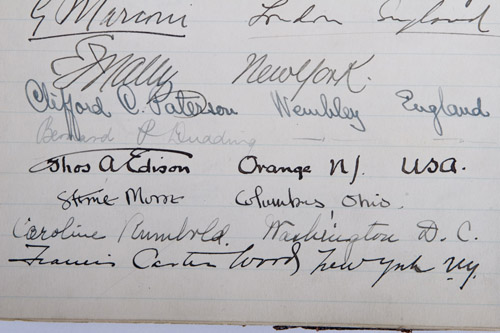 G Marconi London England
New York.
Clifford C. Paterson Wembley England
Bernard P
Thos A Edison Orange NJ. USA.
Columbus, Ohio.
Caroline Rumbold. Washington D. C.
Francis Carter Wood New York N.Y.